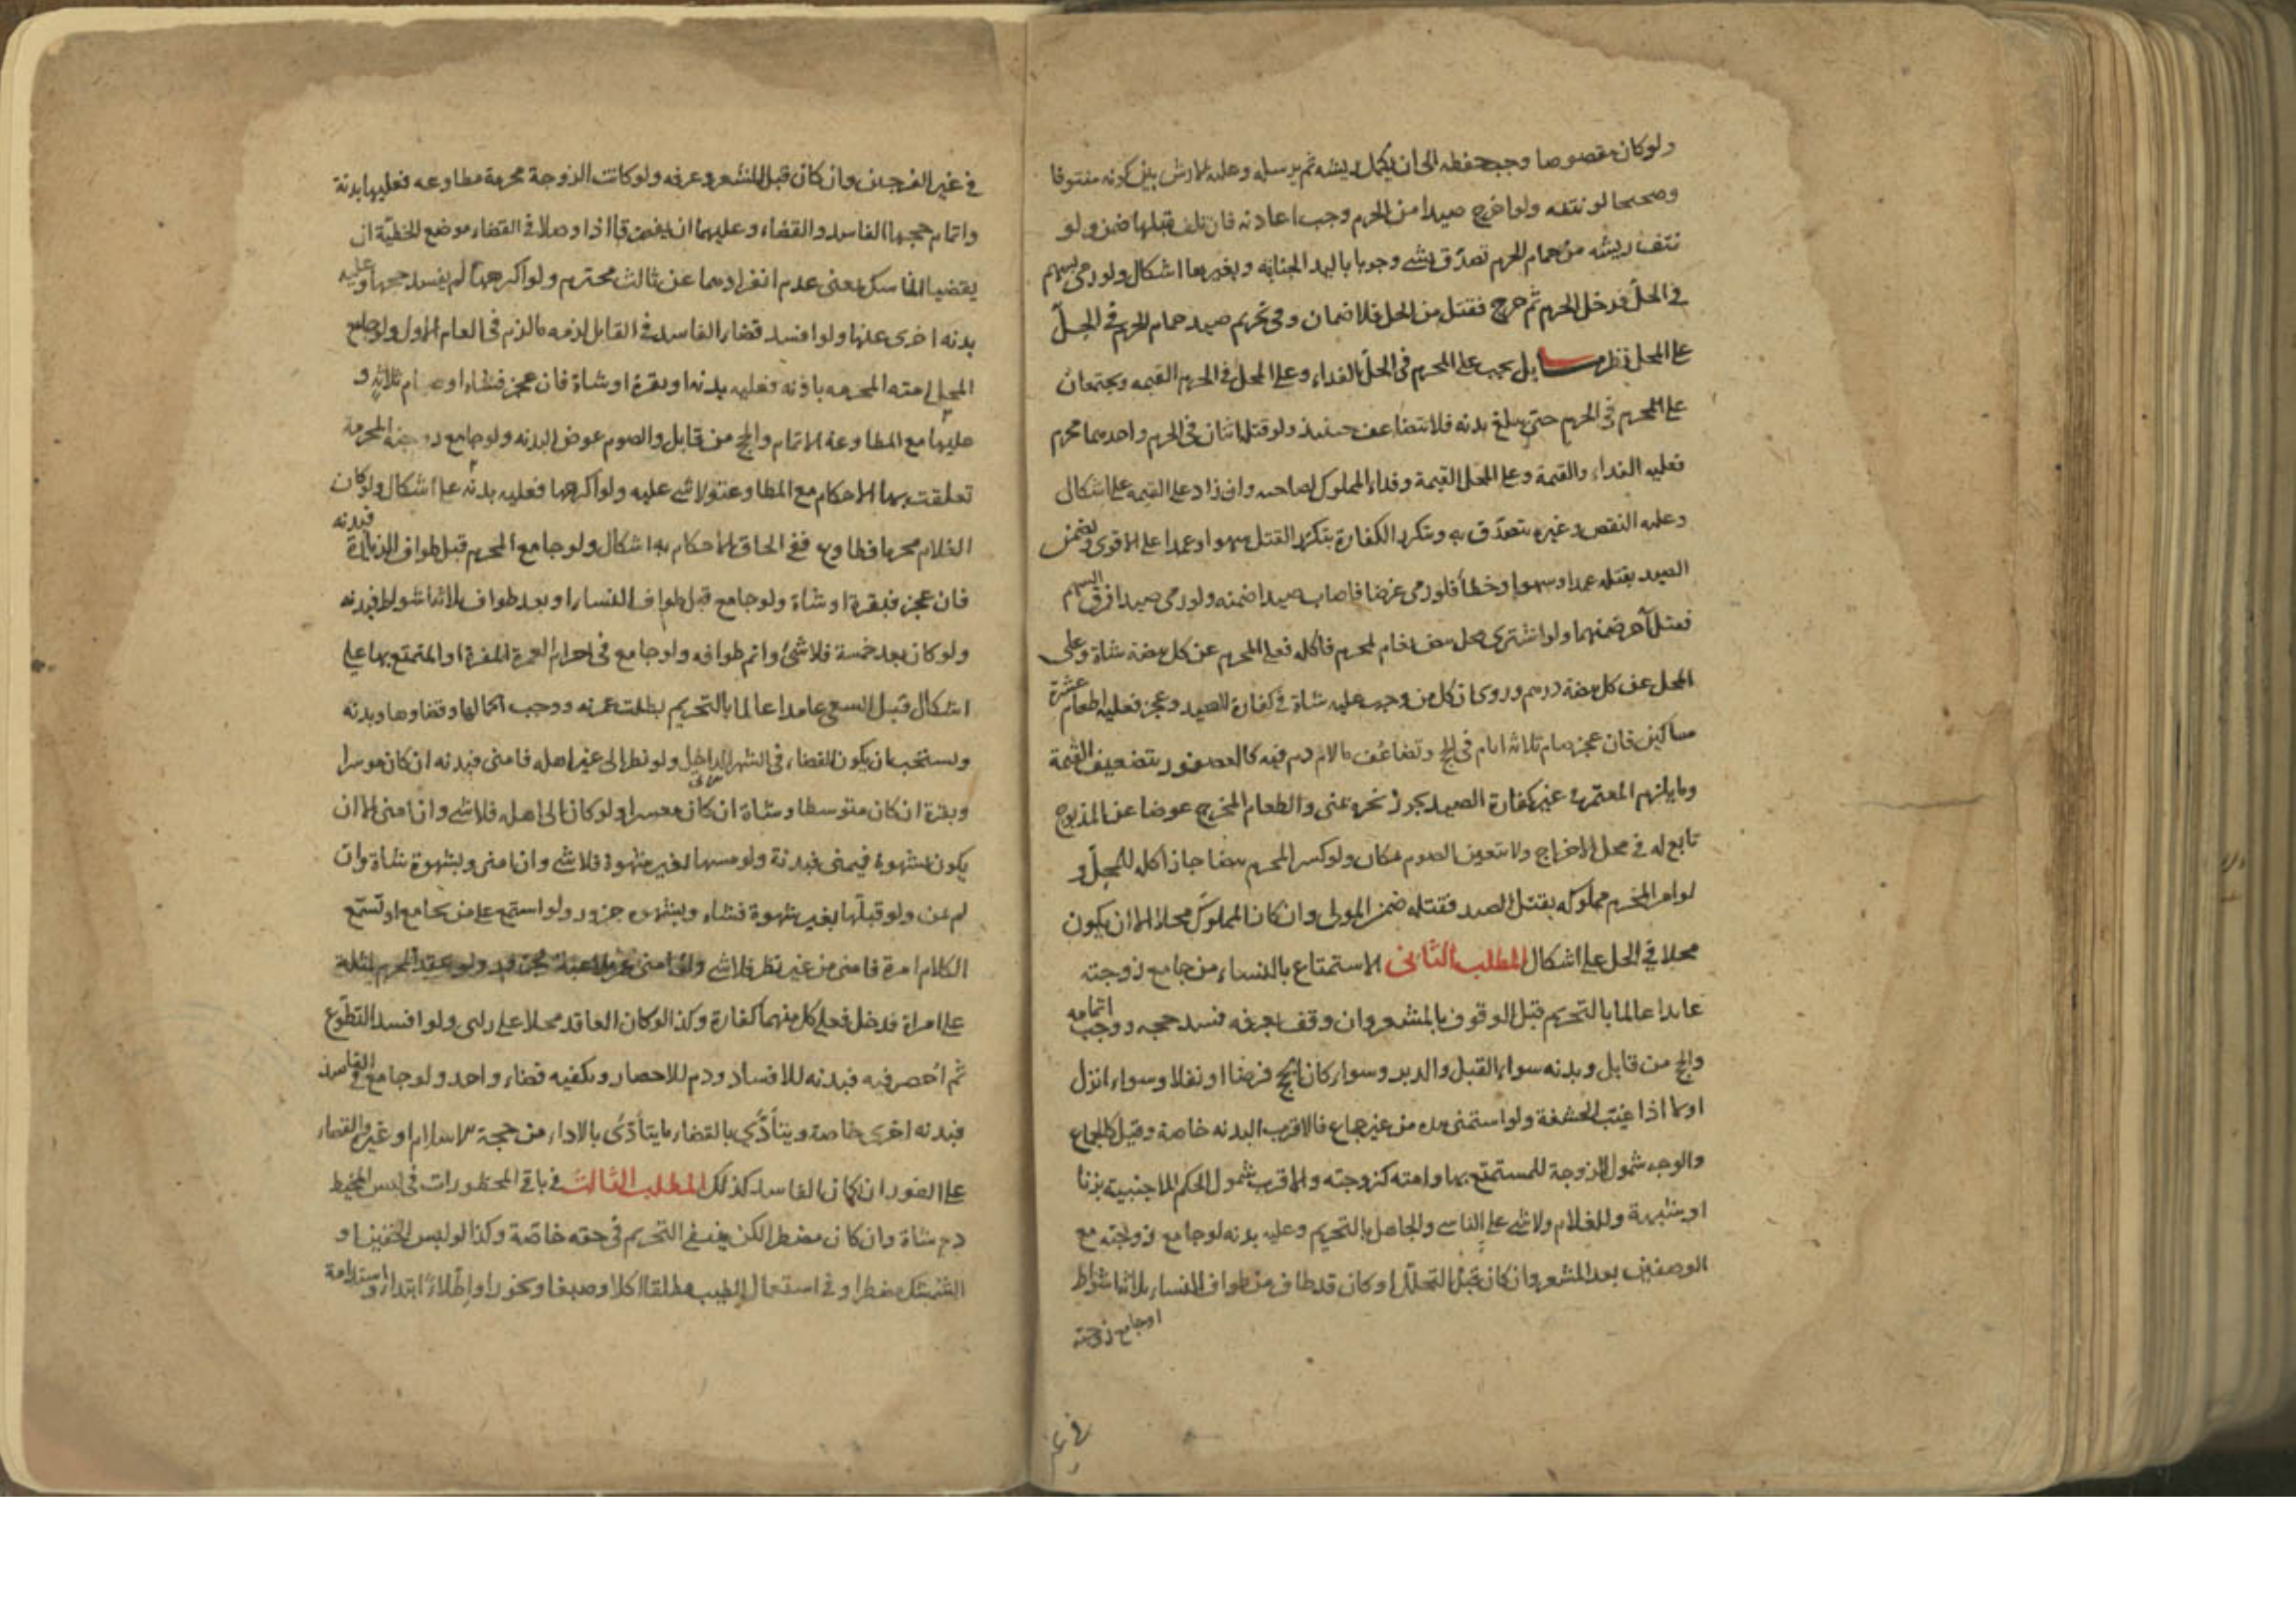 ولو كان مقصوصا وجب حفظه الى ان يكمل ريشه ثم يرسله وعليه الارش بين كونه منتوفا
وصحيحا لو نتفه ولو اخرج صيدا من الحرم وجب اعادته فان تلف قبلها ضمن ولو
نتف ريشه من حمام الحرم تصدق بشى وجوبا باليد الجانية وبغيرها اشكال ولو رمى بسهم
فى الحل فدخل الحرم ثم خرج فقتل من الحل فلا ضمان وفى تحريم صيد حمام الحرم فى الحل
على المحل نظر مسايل يجب على المحرم فى الحل الفداء وعلى المحل فى الحرم القيمه ويجتمعان
على المحرم فى الحرم حتى يبلغ بدنه فلا يتضاعف حينئذ ولو قتله اثنان فى الحرم واحدهما محرم
فعليه الفداء والقيمة وعلى المحل القيمة وفداء المملوك لصاحبه وان زاد على القيمه على اشكال
وعليه النقص وغيره يتصدق به وتتكرر الكفارة بتكرر القتل سهوا وعمدا على الاقوى ويضمن
الصيد بقتله عمدا وسهوا وخطأ فلو رمى غرضا فاصاب صيدا ضمنه ولو رمى صيدا فمرق السهم
فقتل آخر ضمنهما ولو اشترى محل بيض نعام لمحرم فاكله فعلى المحرم عن كل بيضة شاة وعلى
المحل عن كل بيضة درهم وروى ان كل من وجب عليه شاة فى كفارة الصيد وعجز فعليه اطعام عشرة
مساكين فان عجز صام ثلاثة ايام فى الحج وتضاعف ما لا دم فيه كالعصفور بتضعيف القيمة
وما يلزم المعتمر فى غير كفارة الصيد يجوز نحره بمنى والطعام المخرج عوضا عن المذبوح
تابع له فى محل الاخراج ولا يتعين الصوم مكان ولو كسر المحرم بيضا جاز اكله للمحل و
لو امر المحرم مملوكه بقتل الصيد فقتله ضمن المولى وان كان المملوك محلا الا ان يكون
محلا فى الحل على اشكال المطلب الثانى الاستمتاع بالنساء من جامع زوجته
عامدا عالما بالتحريم قبل الوقوف بالمشعر وان وقف بعرفه فسد حجه ووجب اتمامه
والحج من قابل وبدنه سواء القبل والدبر وسواء كان الحج فرضا او نفلا وسواء انزل
او لا اذا غيب الحشفة ولو استمنى بيده من غير جماع فالاقرب البدنه خاصة وقيل كالجماع
والوجه شمول الزوجة للمستمتع بها وامته كزوجته والاقرب شمول الحكم للاجنبية بزنا
او شبهة وللغلام ولا شى على الناسى والجاهل بالتحريم وعليه بدنه لو جامع زوجته مع
الوصفين بعد المشعر وان كان قبل التحلل او كان قد طاف من طواف النساء ثلاثة اشواط
او جامع زوجته
فى غير
فى غير الفرجين وان كان قبل المشعر وعرفه ولو كانت الزوجة محرمة مطاوعه فعليها بدنة
واتمام حجها الفاسد والقضاء وعليهما ان يفترقا اذا وصلا فى القضاء موضع الخطيئة الى ان
يقضيا المناسك بمعنى عدم انفرادهما عن ثالث محترم ولو اكرهها لم يفسد حجها وعليه
بدنه اخرى عنها ولو افسد قضاء الفاسد فى القابل لزمه ما لزم فى العام الاول ولو جامع
المحل امته المحرمه باذنه فعليه بدنه او بقرة او شاة فان عجز فشاة او صيام ثلاثة و
عليها مع المطاوعة الاتمام والحج من قابل والصوم عوض البدنه ولو جامع زوجته المحرمة
تعلقت بها الاحكام مع المطاوعة ولا شى عليه ولو اكرهها فعليه بدنة على اشكال ولو كان
الغلام محرما فطاوع ففى الحاق الاحكام به اشكال ولو جامع المحرم قبل طواف الزيارة فبدنه
فان عجز فبقرة او شاة ولو جامع قبل طواف النساء او بعد طواف ثلاثة اشواط فبدنه
ولو كان بعد خمسة فلا شئ واتم طوافه ولو جامع فى احرام العمرة المفردة او المتمتع بها على
اشكال قبل السعى عامدا عالما بالتحريم بطلت عمرته ووجب اكمالها وقضاوها وبدنه
ويستحب ان يكون القضاء فى الشهر الداخل ولو نظر الى غير اهله فامنى فبدنه ان كان موسرا
وبقرة ان كان متوسطا وشاة ان كان معسرا ولو كان الى اهله فلا شى وان امنى الا ان
يكون بشهوة فيمنى فبدنة ولو مسها لغير شهوة فلا شى وان امنى وبشهوة شاة وان
لم يمن ولو قبلها بغير شهوة فشاة وبشهوه جزور ولو استمع على من يجامع او تسمع
الكلام امرة فامنى من غير نظر فلا شى ولو امنى عن ملاعبة فجزور ولو عقد المحرم لمثله
على امراة فدخل فعلى كل منهما كفارة وكذا لو كان العاقد محلا على راى ولو افسد التطوع
ثم احصر فيه فبدنه للافساد ودم للاحصار ويكفيه قضاء واحد ولو جامع فى الفاسد
فبدنه اخرى خاصة ويتأدى بالقضاء ما يتأدى بالاداء من حجة الاسلام او غيره والقضاء
على الفور ان كان الفاسد كذلك المطلب الثالث فى باقى المحظورات فى لبس المخيط
دم شاة وان كان مضطرا لكن ينتفى التحريم فى حقه خاصة وكذا لو لبس الخفين او
الشمشك مضطرا وفى استعمال الطيب مطلقا اكلا وصبغا وبخورا واطلاء ابتداء واستدامة